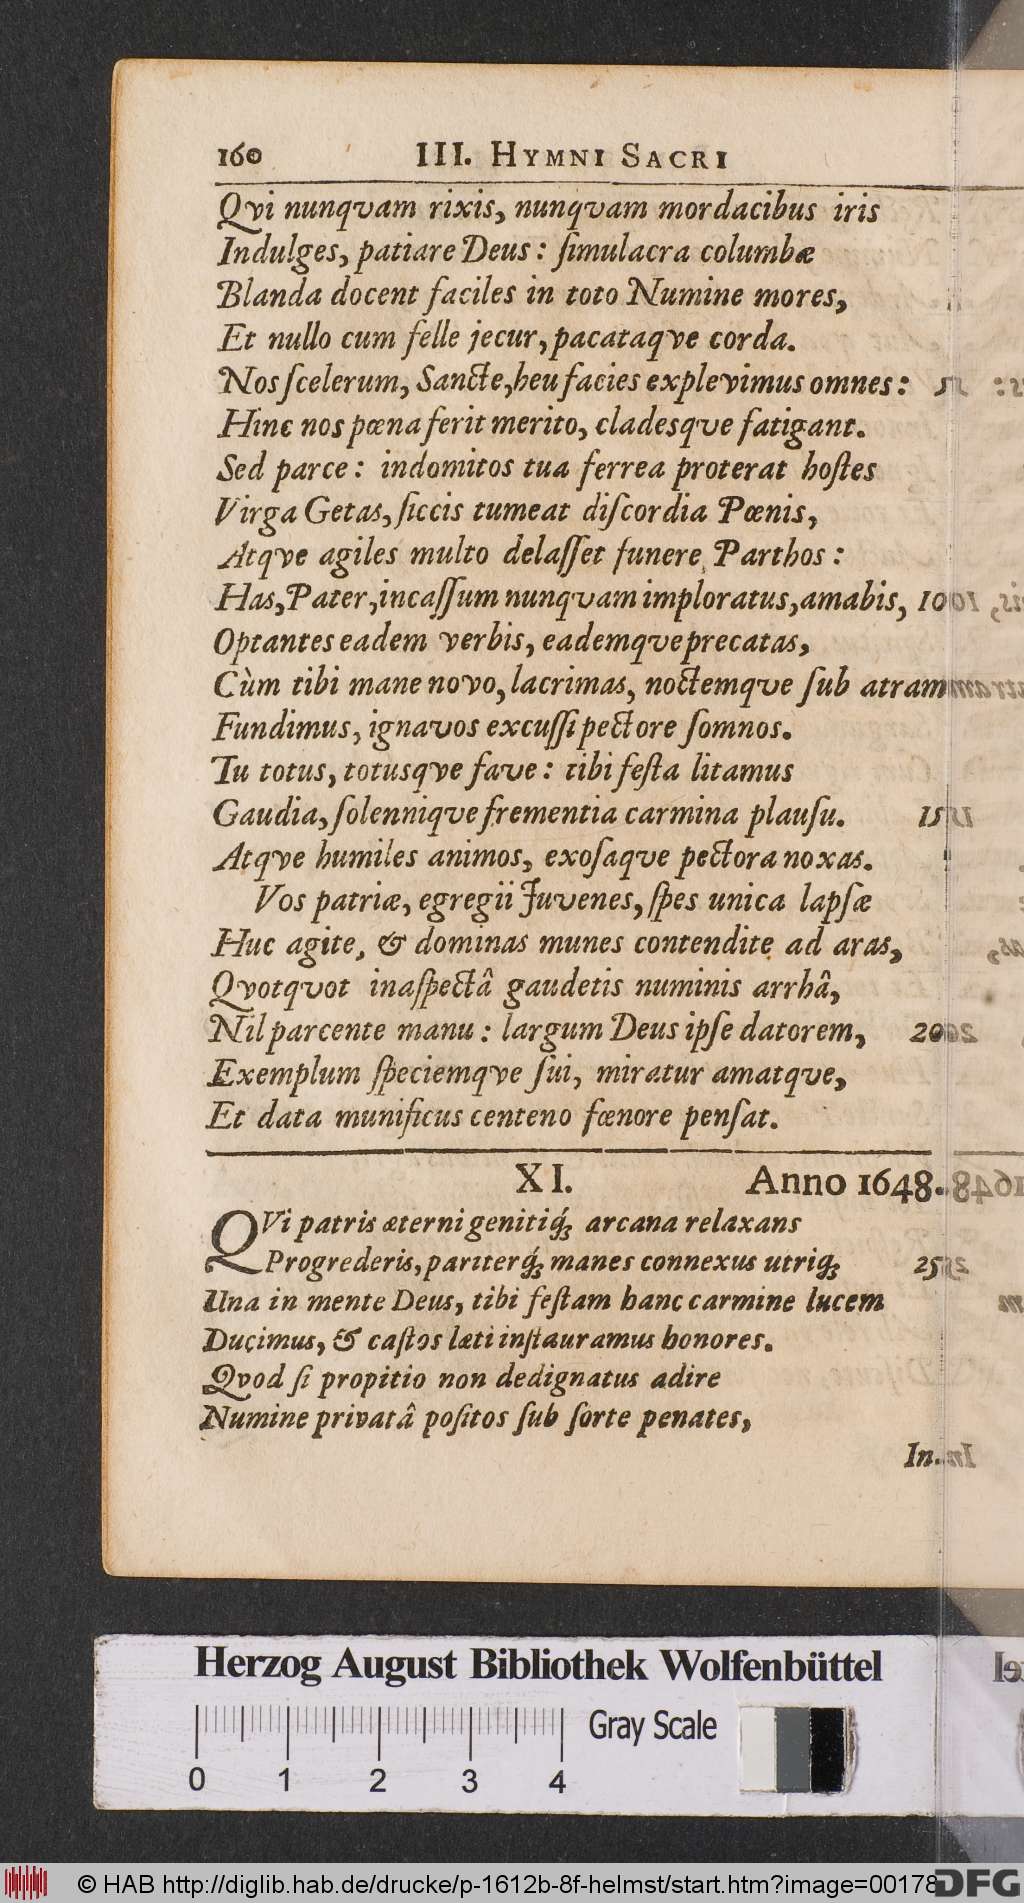 160 III. HYMNI SACRI
Qvi nunqvam rixis, nunqvam mordacibus iris
Indulges, patiare Deus: ſimulacra columbæ
Blanda docent faciles in toto Numine mores,
Et nullo cum felle jecur, pacataqve corda.
Nos ſcelerum, Sancte, heu facies explevimus omnes:
Hinc nos pœna ferit merito, cladesqve fatigant.
Sed parce: indomitos tua ferrea proterat hoſtes
Virga Getas, ſiccis tumeat diſcordia Pœnis,
Atqve agiles multo delaſſet funere Parthos:
Has, Pater, incaſſum nunqvam imploratus, amabis, 10
Optantes eadem verbis, eademqve precatas,
Cùm tibi mane novo, lacrimas, noctemqve ſub atram
Fundimus, ignavos excuſſi pectore ſomnos.
Tu totus, totusqve fave: tibi feſta litamus
Gaudia, ſolenniqve frementia carmina plauſu. 15
Atqve humiles animos, exoſaqve pectora noxas.
Vos patriæ, egregii Juvenes, ſpes unica lapſæ
Huc agite, & dominas munes contendite ad aras,
Qvotqvot inaſpectâ gaudetis numinis arrhâ,
Nil parcente manu: largum Deus ipſe datorem, 20
Exemplum ſpeciemqve ſui, miratur amatqve,
Et data munificus centeno fœnore penſat.
XI. Anno 1648.
QVi patris æterni genitiq́; arcana relaxans
Progrederis, pariterq́; manes connexus utriq; 25
Una in mente Deus, tibi feſtam hanc carmine lucem
Ducimus, & caſtos læti inſtauramus honores.
Qvod ſi propitio non dedignatus adire
Numine privatâ poſitos ſub ſorte penates,
In-
Herzog August Bibliothek Wolfenbüttel
Gray Scale
0 1 2 3 4
© HAB http://diglib.hab.de/drucke/p-1612b-8f-helmst/start.htm?image=00178
DFG